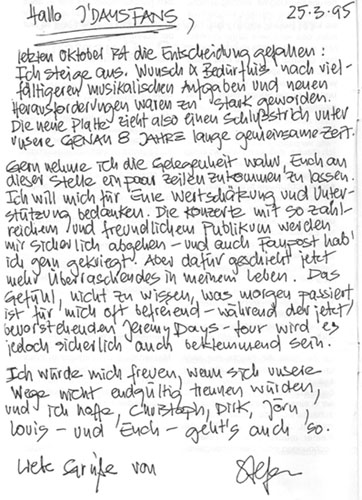 Hallo J'DAYSFANS, 25.3.95
letzten Oktober ist die Entscheidung gefallen:
Ich steige aus. Wunsch & Bedürfnis nach viel-
fältigeren musikalischen Aufgaben und neuen
Herausforderungen waren zu stark geworden.
Die neue Platte zieht also einen Schlußstrich unter
unsere GENAU 8 JAHRE lange gemeinsame Zeit.
Gern nehme ich die Gelegenheit wahr, Euch an
dieser Stelle ein paar Zeilen zukommen zu lassen.
Ich will mich für Eure Wertschätzung und Unter-
stützung bedanken. Die Konzerte mit so zahl-
reichem und freundlichem Publikum werden
mir sicherlich abgehen – und auch Fanpost hab'
ich gern gekriegt. Aber dafür geschieht jetzt
mehr Überraschendes in meinem Leben. Das
Gefühl, nicht zu wissen, was morgen passiert
ist für mich oft befreiend – während der jetzt
bevorstehenden Jeremy Days – tour wird es
jedoch sicherlich auch beklemmend sein.
Ich würde mich freuen, wenn sich unsere
Wege nicht endgültig trennen würden,
und ich hoffe, Christoph, Dirk, Jörn,
Louis – und Euch – geht's auch so.
Liebe Grüße von Stefan